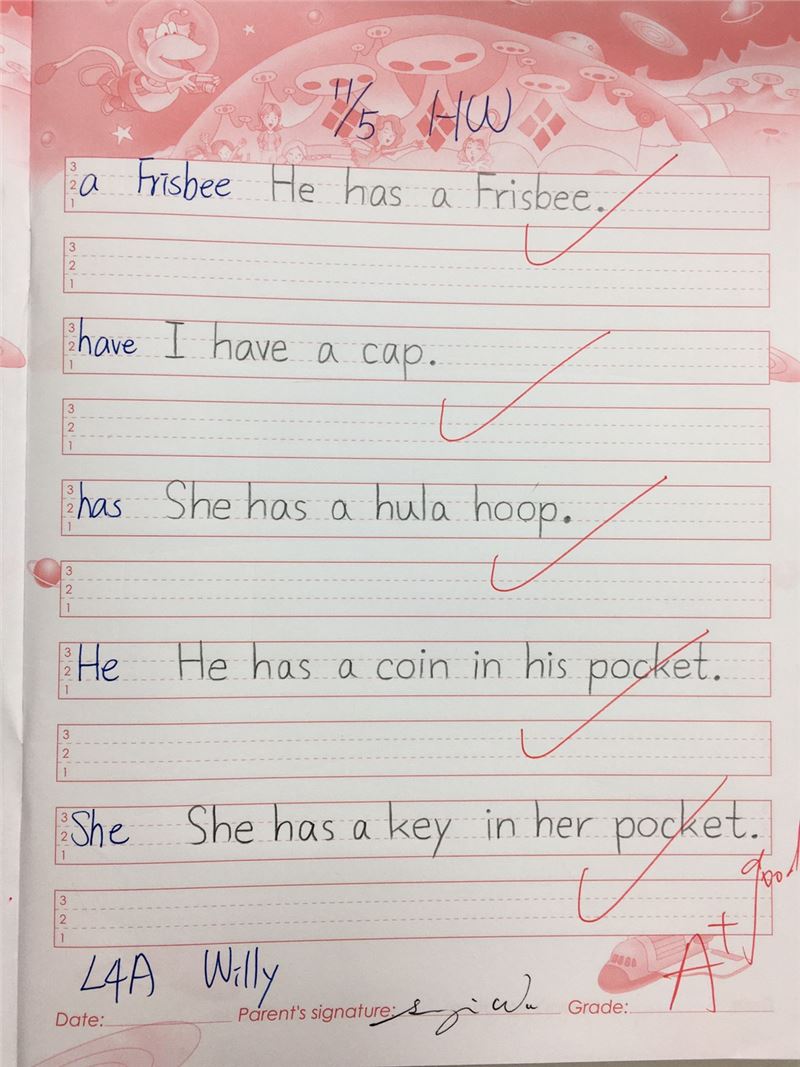 11/5 HW
3 2 1 a Frisbee He has a Frisbee.
3 2 1
3 2 1 have I have a cap.
3 2 1
3 2 1 has She has a hula hoop.
3 2 1
3 2 1 He He has a coin in his pocket.
3 2 1
3 2 1 She She has a key in her pocket.
3 2 1
good
L4A Willy A+
Date: Parent's signature: Wu Grade: